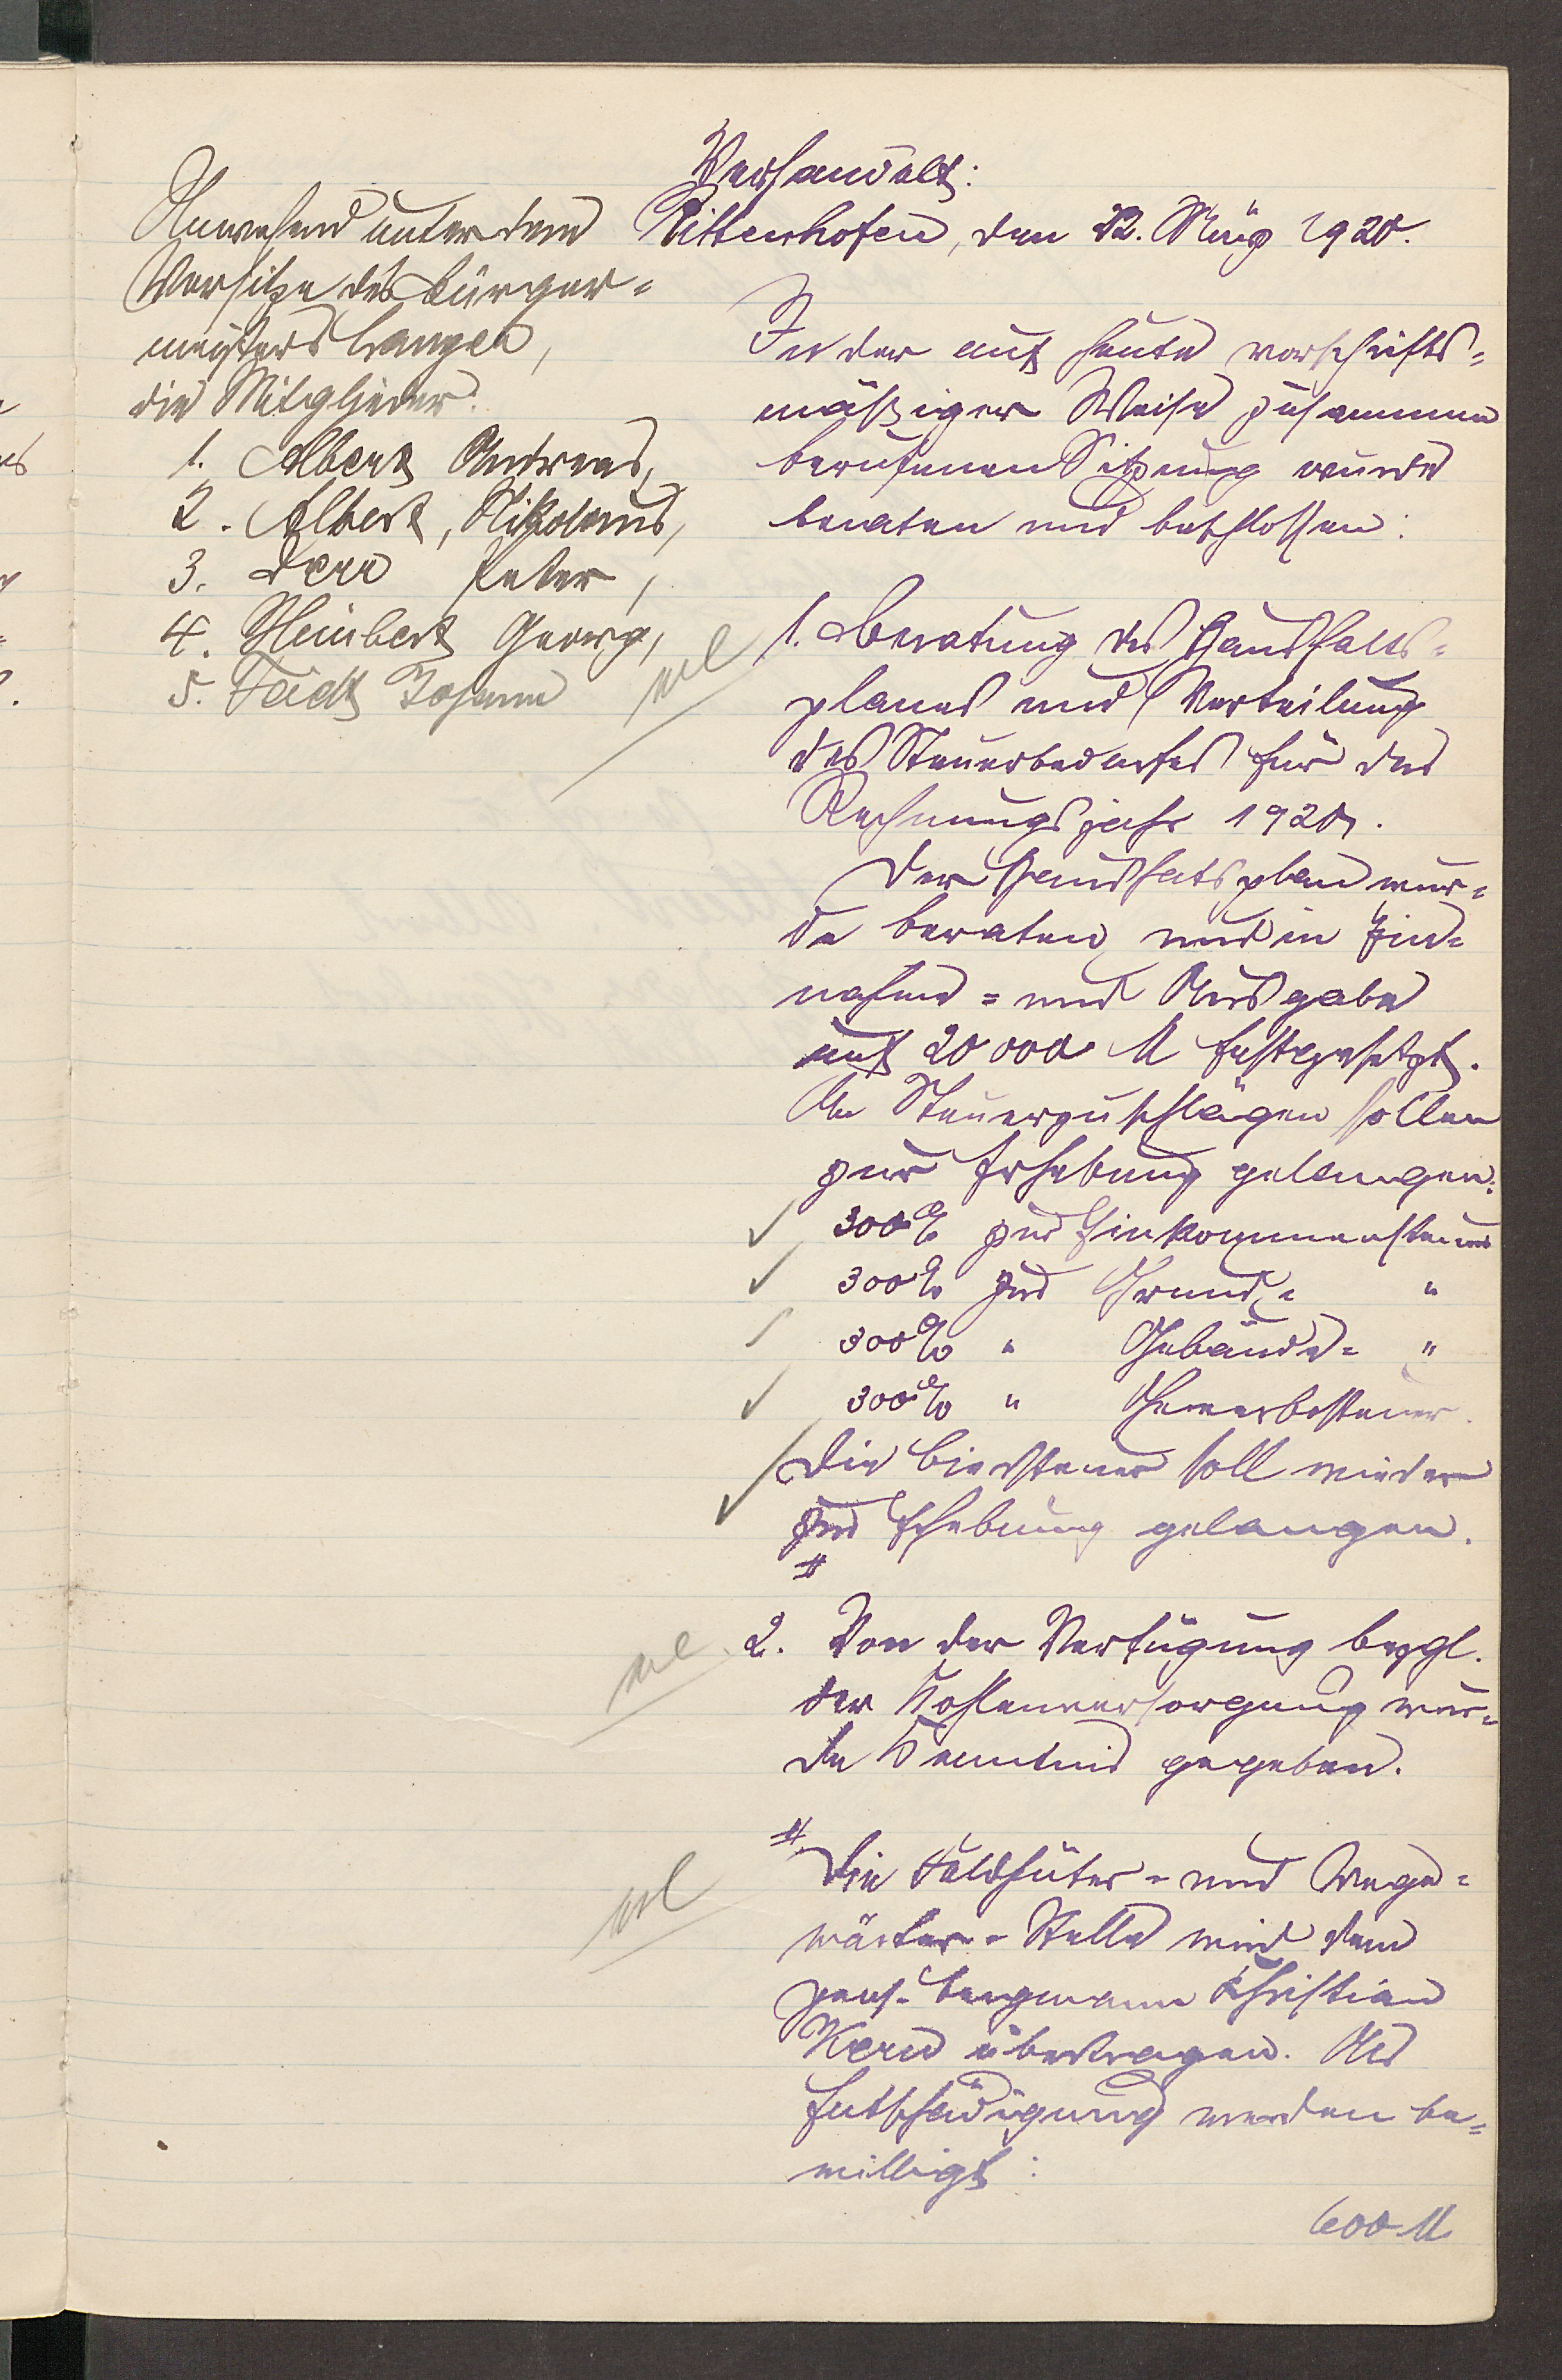 Verhandelt:
Rittenhofen, den 22. März 1920.
Anwesend unter dem
Vorsitze des Bürger=
meisters Langen,
die Mitglieder:
1. Albert Andreas,
2. Albert, Nikolaus,
3. Derr Peter,
4. Heinbert Georg,
5. Feidt Johann
In der auf heute vorschrifts=
mäßiger Weise zusammen
berufenen Sitzung wurde
beraten und beschlossen:
1. Beratung des Haushalts=
planes und Verteilung
des Steuerbedarfes für das
Rechnungsjahr 1920.
Der Haushatsplan wur=
de beraten und in Ein=
nahme= und Ausgabe
auf 20 000 M festgesetzt.
An Steuerzuschlägen sollen
zur Erhebung gelangen:
300% zur Einkommensteuer
300% zur Grund= "
300% " Gebäude= "
300% " Gewerbesteuer.
Die Biersteuer soll wieder
zur Erhebung gelangen.
#
2. Von der Verfügung bezgl.
der Kohlenversorgung wur=
de Kenntnis gegeben.
# Die Feldhüter= und Wege=
wärter=Stelle wird dem
pens. Bergmann Christian
Kern übertragen. Als
Entschädigung werden be=
willigt:
600 M